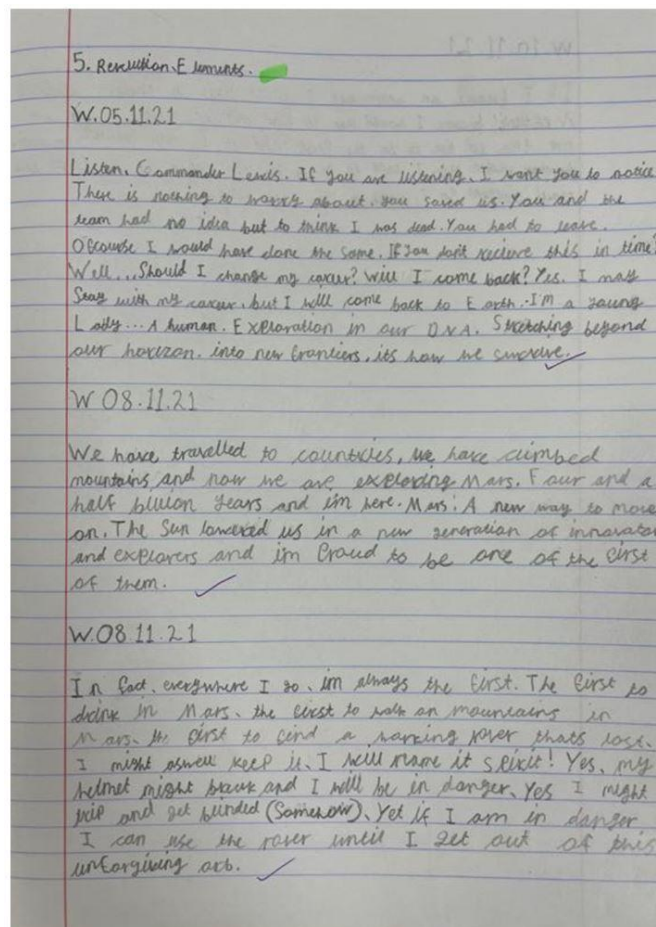 5. Resolution Elements.
W.05.11.21
Listen, Commander Lewis. If you are listening, I want you to notice
There is nothing to worry about. you saved us. You and the
team had no idea but to think I was dead. You had to leave.
Ofcourse I would have done the same. If you don't recieve this in time?
Well... Should I change my career? Will I come back? Yes. I may
Stay with my career, but I will come back to Earth. I'm a young
Lady... A human. Exploration in our DNA. Stretching beyond
our horizon, into new frontiers, its how we survive.
W 08.11.21
We have travelled to countries, we have climbed
mountains and now we are exploring Mars. Four and a
half billion years and im here. Mars: A new way to move
on. The Sun lowered us in a new generation of innovator
and explorers and im proud to be one of the first
of them.
W.08.11.21
In fact, everywhere I go, im always the first. The first to
drink in Mars, the first to walk on mountains in
Mars, the first to find a working rover thats lost.
I might aswell keep it, I will name it spirit! Yes, my
helmet might break and I will be in danger, Yes I might
trip and get blinded (Somehow), Yet if I am in danger
I can use the rover until I get out of this
unforgiving orb.